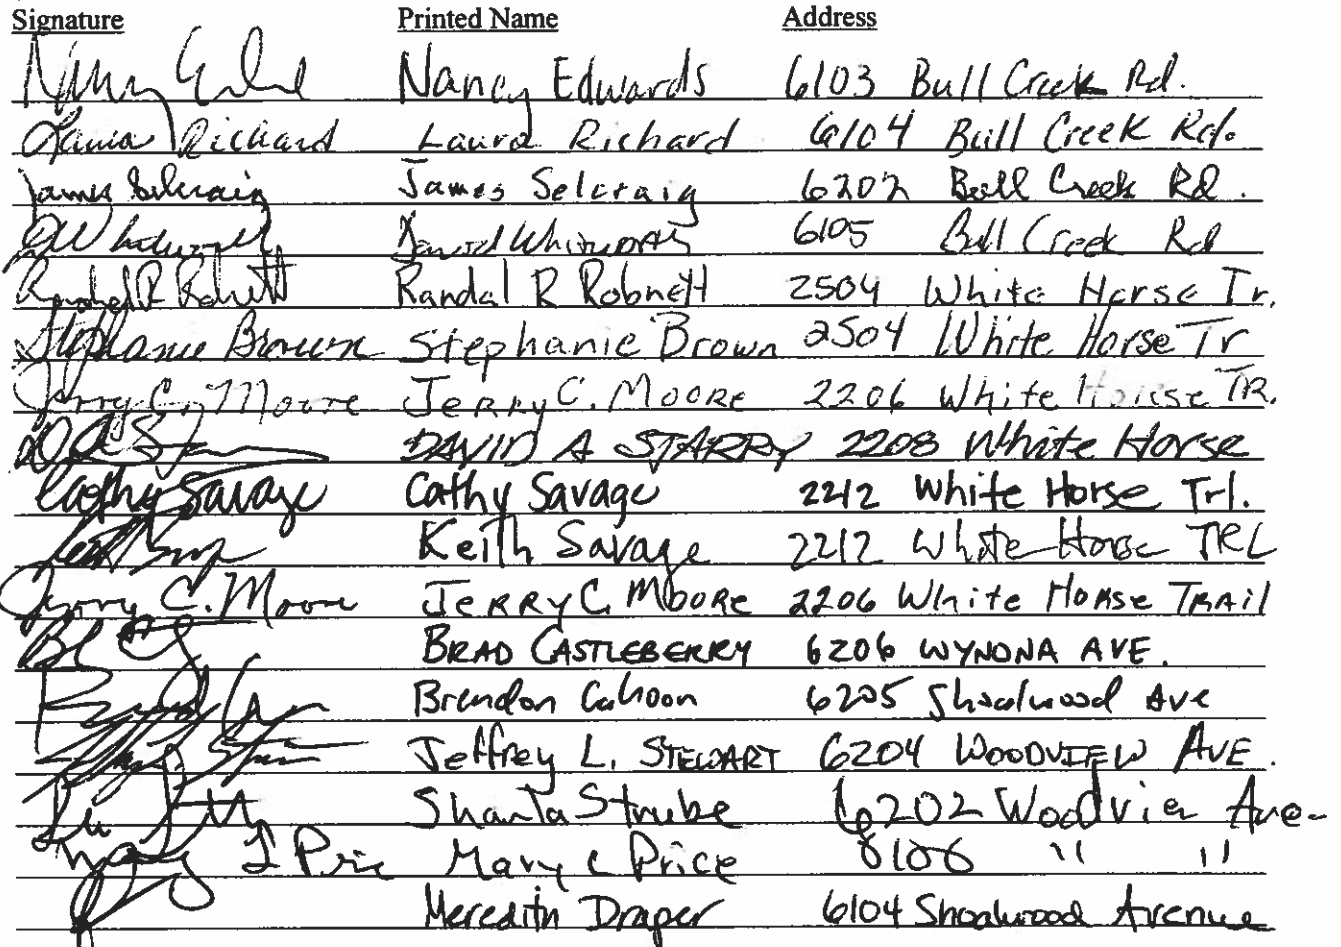 Signature Printed Name Address
Nancy Edwards Nancy Edwards 6103 Bull Creek Rd.
Laura Richard Laura Richard 6104 Bull Creek Rd.
James Selcraig James Selcraig 6202 Bull Creek Rd.
David Whitworth 6105 Bull Creek Rd
Randal R Robnett Randal R Robnett 2504 White Horse Tr.
Stephanie Brown Stephanie Brown 2504 White Horse Tr
Jerry C. Moore Jerry C. Moore 2206 White Horse TR.
DAVID A STARRY 2208 White Horse
Cathy Savage Cathy Savage 2212 White Horse Trl.
Keith Savage 2212 White Horse TRL
Jerry C. Moore Jerry C. Moore 2206 White Horse Trail
BRAD CASTLEBERRY 6206 WYNONA AVE.
Brendon Cahoon 6205 Shoalwood Ave
Jeffrey L. STEWART 6204 WOODVIEW AVE.
Shanta Strube 6202 Woodview Ave.
Mary L Price Mary L Price 6106 " "
Meredith Draper 6104 Shoalwood Avenue